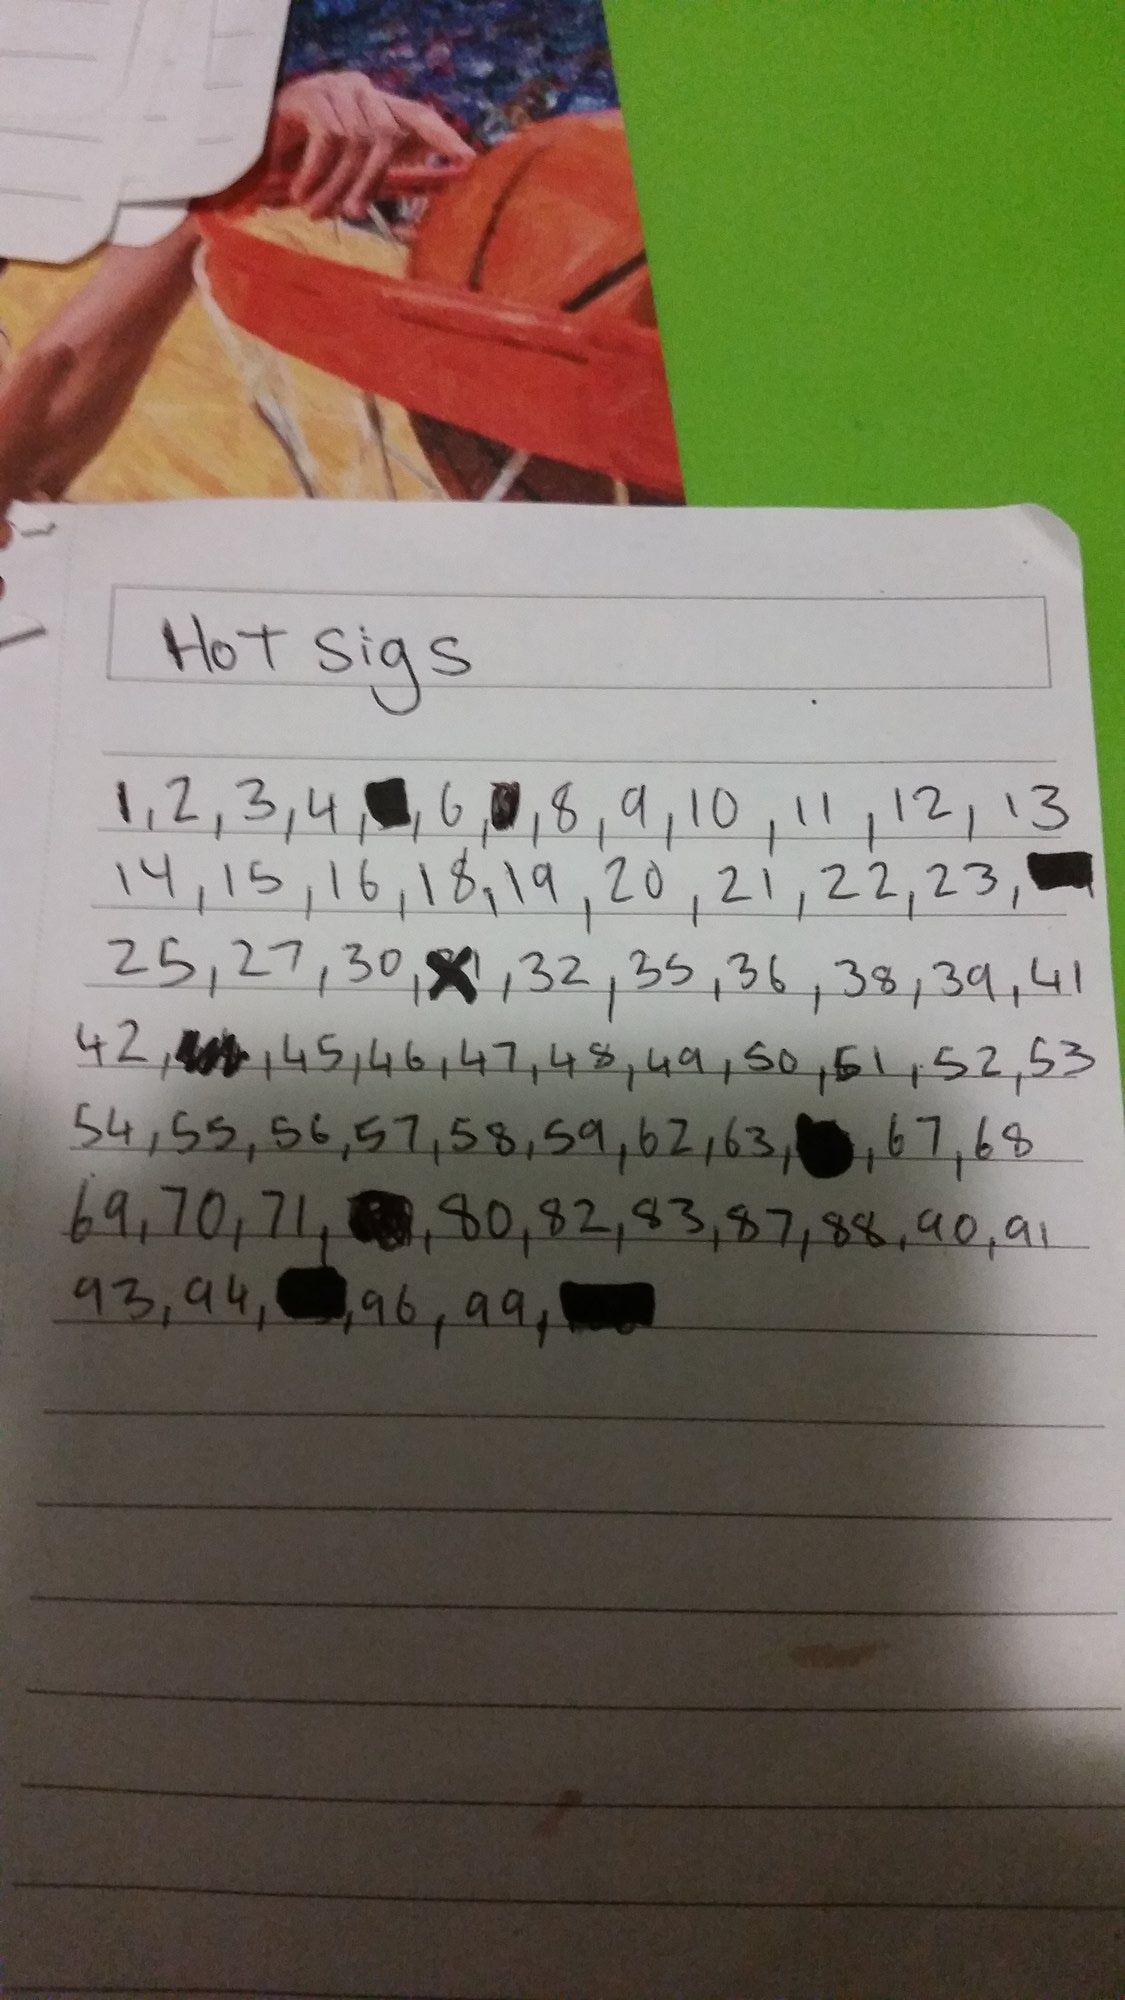 Hot sigs
1,2,3,4, ,6, ,8,9,10,11,12,13
14,15,16,18,19,20,21,22,23,
25,27,30, ,32,35,36,38,39,41
42, ,45,46,47,48,49,50,51,52,53
54,55,56,57,58,59,62,63, ,67,68
69,70,71, ,80,82,83,87,88,90,91
93,94, ,96,99,